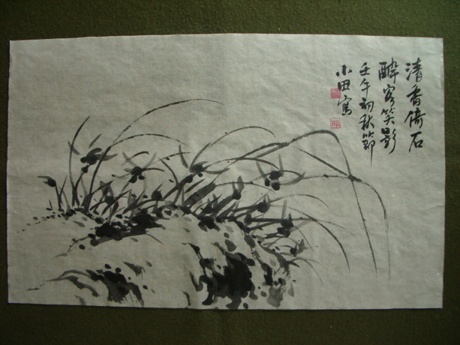 清香倚石
醉客笑影
壬午初秋節
小田寫